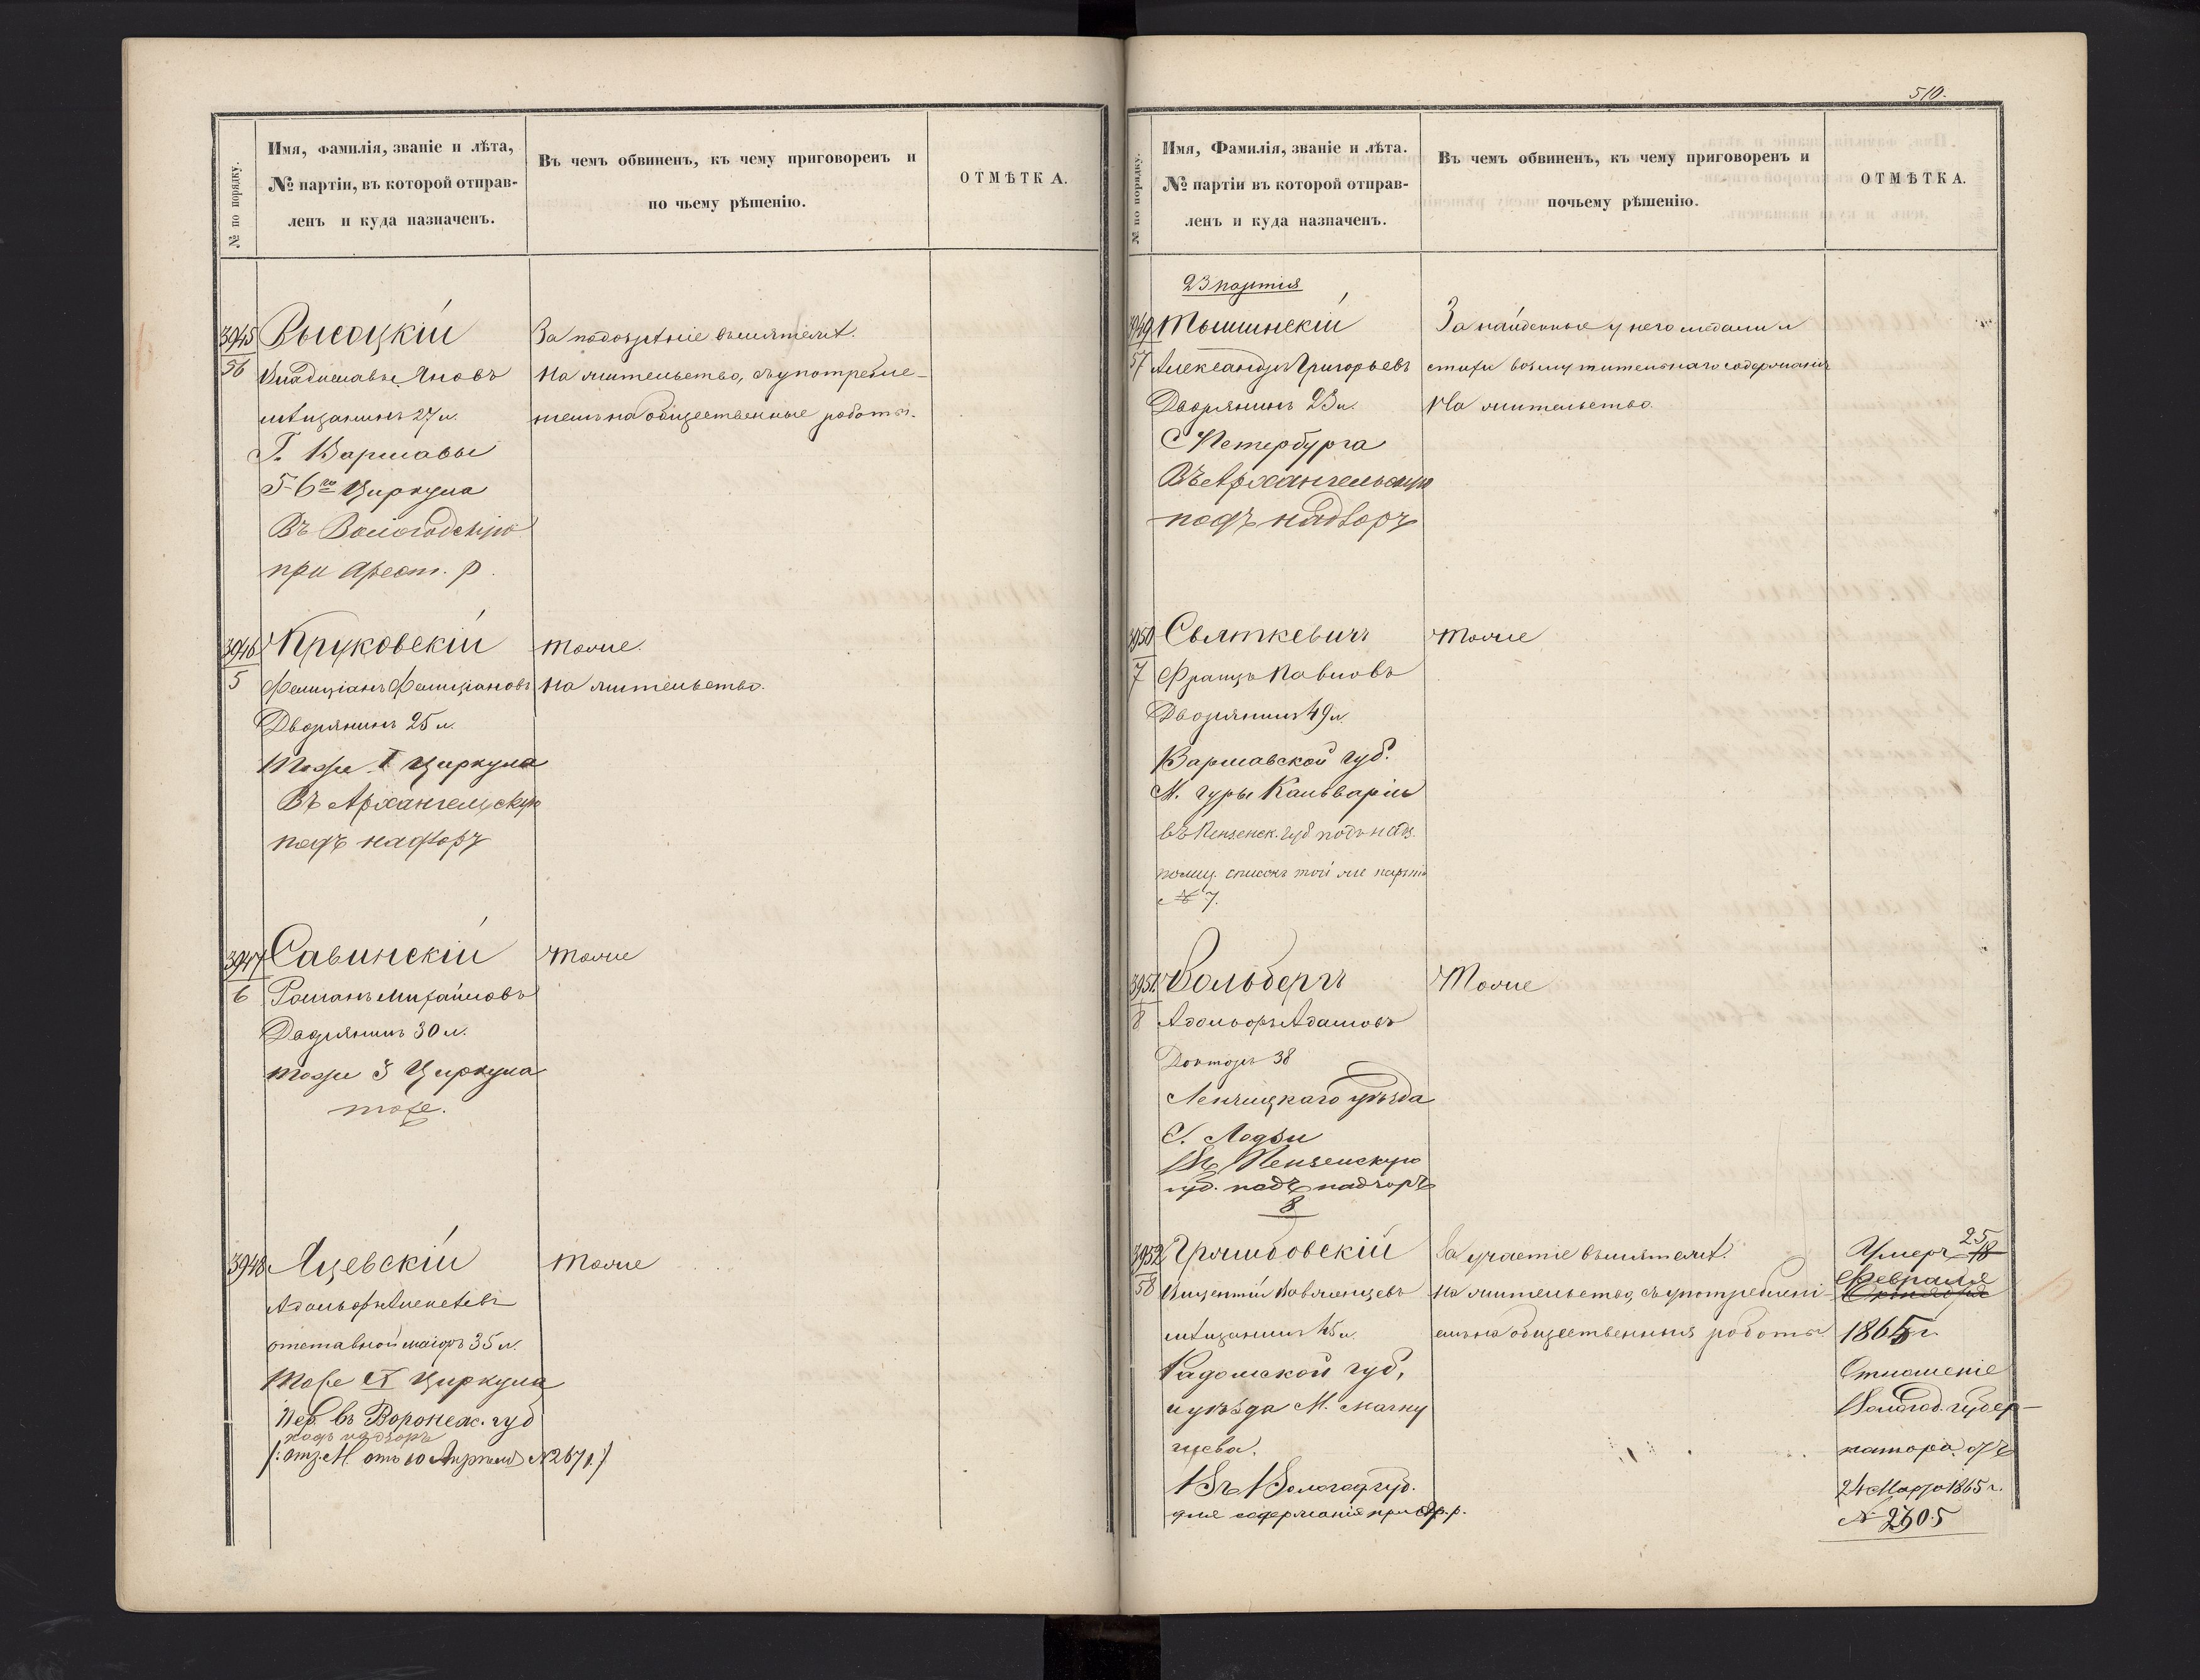 № по порядку.
Имя, фамилія, званіе и лѣта,
№ партіи, въ которой отправ-
ленъ и куда назначенъ.
Въ чемъ обвиненъ, къ чему приговоренъ и
по чьему рѣшенію.
ОТМѢТКА.
3945
56
Высоцкій
Владиславъ Яновъ
мѣщанинъ 27 л.
Г. Варшавы
5-6го Циркула
Въ Вологодскую
при Арест. р.
За подозрѣніе въ мятежѣ.
На жительство, съ употребле-
ніемъ на общественные работы.
3946
5
Круковскій
Фелиціанъ Фелиціановъ
Дворянинъ 25 л.
Тоже I Циркула
Въ Архангельскую
подъ надзоръ
Тоже.
На жительство.
3947
6
Савинскій
Романъ Михайловъ
Дворянинъ 30 л.
тоже 3 Циркула
тоже.
Тоже
3948
Яцевскій
Адольфъ Алексѣевъ
отставной маіоръ 35 л.
Тоже Циркула
въ Воронеж. губ
подъ надзоръ
отъ 10 Апрѣля №2671
Тоже
510.
№ по порядку.
Имя, Фамилія, званіе и лѣта.
№ партіи въ которой отправ-
ленъ и куда назначенъ.
Въ чемъ обвиненъ, къ чему приговоренъ и
почьему рѣшенію.
ОТМѢТКА.
23 партія
3949
57
Тышинскій
Александръ Григорьевъ
Дворянинъ 23 л.
С Петербурга
Въ Архангельскую
подъ надзоръ
За найденные у него медали и
стихи возмутительнаго содержанія
На жительство.
3950
7
Святкевичъ
Францъ Павловъ
Дворянинъ 49 л.
Варшавской губ.
М. Гуры Кальваріи
въ Пензенск. губ подъ надз.
полиц. списокъ той же партіи
№ 7.
Тоже
3951
8
Вольбергъ
Адольфъ Адамовъ
Докторъ 38
Ленчицкаго уѣзда
Г. Лодзи
Въ Пензенскую
губ. подъ надзоръ
8
Тоже
3952
58
Грямбовскій
Викентій Вавженцевъ
мѣщанинъ 45 л.
Радомской губ,
и уѣзда М.
Въ Вологод губ.
для содержанія при Ар. р.
За участіе въ мятежѣ.
На жительство, съ употреблені-
емъ на общественныя работы.
Умеръ 25 18
Февраля
1865 г.
Отношеніе
Вологод. губер-
натора отъ
24 Марта 1865 г.
№ 2305